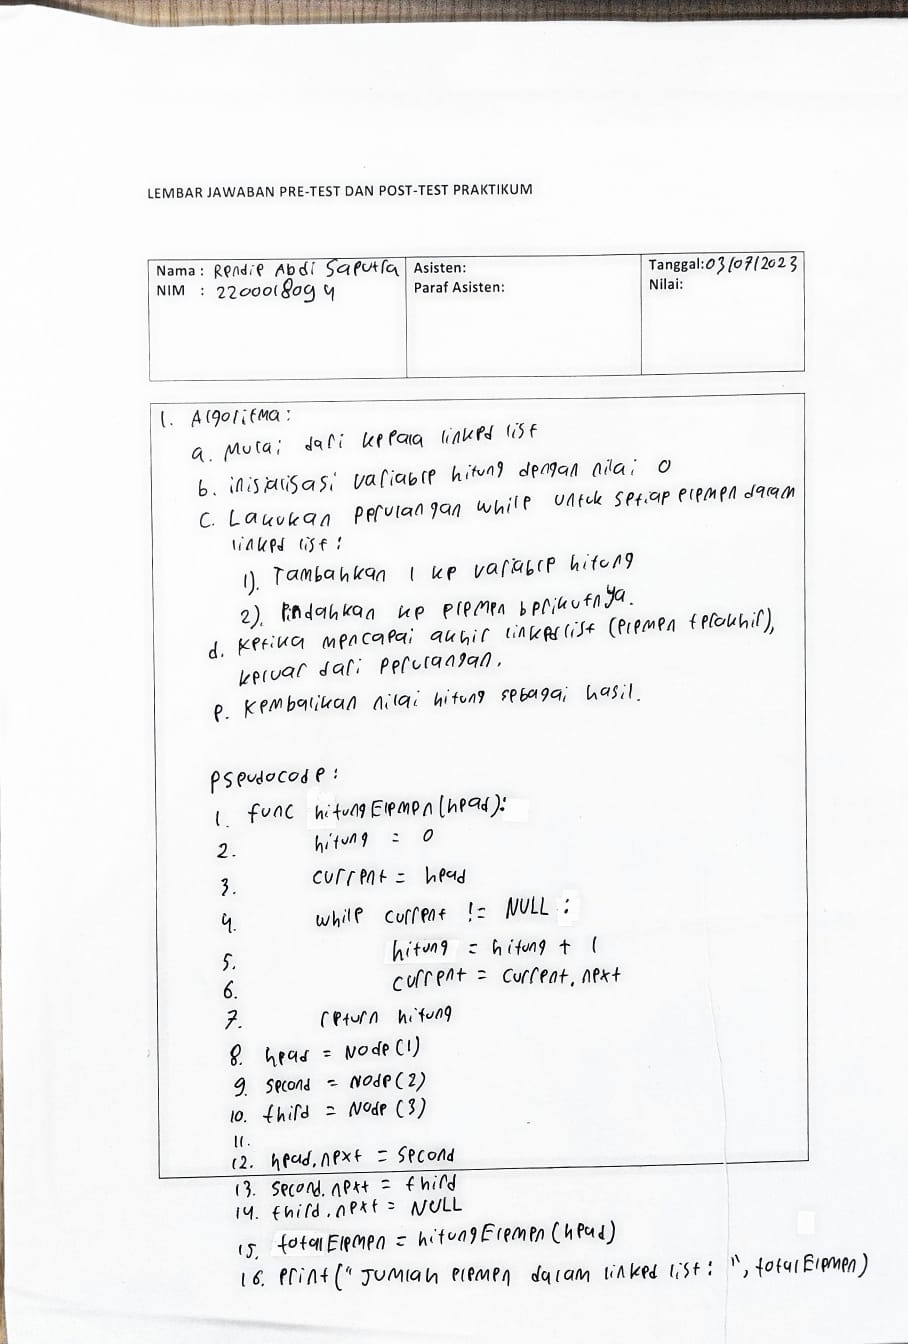 LEMBAR JAWABAN PRE-TEST DAN POST-TEST PRAKTIKUM
Nama : Rendie Abdi Saputra
NIM : 2200018094
Asisten:
Paraf Asisten:
Tanggal: 03/07/2023
Nilai:
1. Algoritma :
a. Mulai dari kepala linked list
b. inisialisasi variable hitung dengan nilai 0
c. Lakukan perulangan while untuk setiap elemen dalam
linked list :
1). Tambahkan 1 ke variable hitung
2). Pindahkan ke elemen berikutnya.
d. Ketika mencapai akhir linked list (elemen terakhir),
keluar dari perulangan.
e. Kembalikan nilai hitung sebagai hasil.
pseudocode :
1. func hitungElemen(head):
2. hitung = 0
3. current = head
4. while current != NULL :
5. hitung = hitung + 1
6. current = current.next
7. return hitung
8. head = Node(1)
9. second = Node(2)
10. third = Node(3)
11.
12. head.next = second
13. second.next = third
14. third.next = NULL
15. totalElemen = hitungElemen(head)
16. print("Jumlah elemen dalam linked list: ", totalElemen)